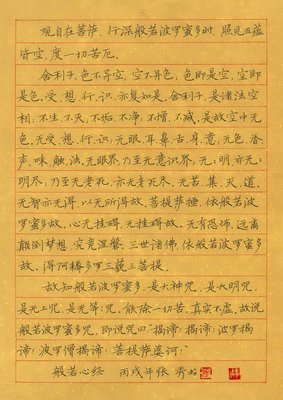 观自在菩萨，行深般若波罗蜜多时，照见五蕴
皆空，度一切苦厄。
舍利子，色不异空，空不异色，色即是空，空即
是色，受、想、行、识，亦复如是。舍利子，是诸法空
相，不生、不灭，不垢、不净，不增、不减，是故空中无
色，无受、想、行、识，无眼、耳、鼻、舌、身、意；无色、香、
声、味、触、法；无眼界，乃至无意识界，无无明，亦无无
明尽，乃至无老死，亦无老死尽，无苦、集、灭、道，
无智亦无得，以无所得故。菩提萨埵，依般若波
罗蜜多故，心无挂碍，无挂碍故，无有恐怖，远离
颠倒梦想，究竟涅槃，三世诸佛，依般若波罗蜜多
故，得阿耨多罗三藐三菩提。
故知般若波罗蜜多，是大神咒，是大明咒，
是无上咒，是无等咒，能除一切苦，真实不虚，故说
般若波罗蜜多咒，即说咒曰：“揭谛！揭谛！波罗揭
谛！波罗僧揭谛！菩提萨婆诃！”
般若心经 丙戌年张秀书